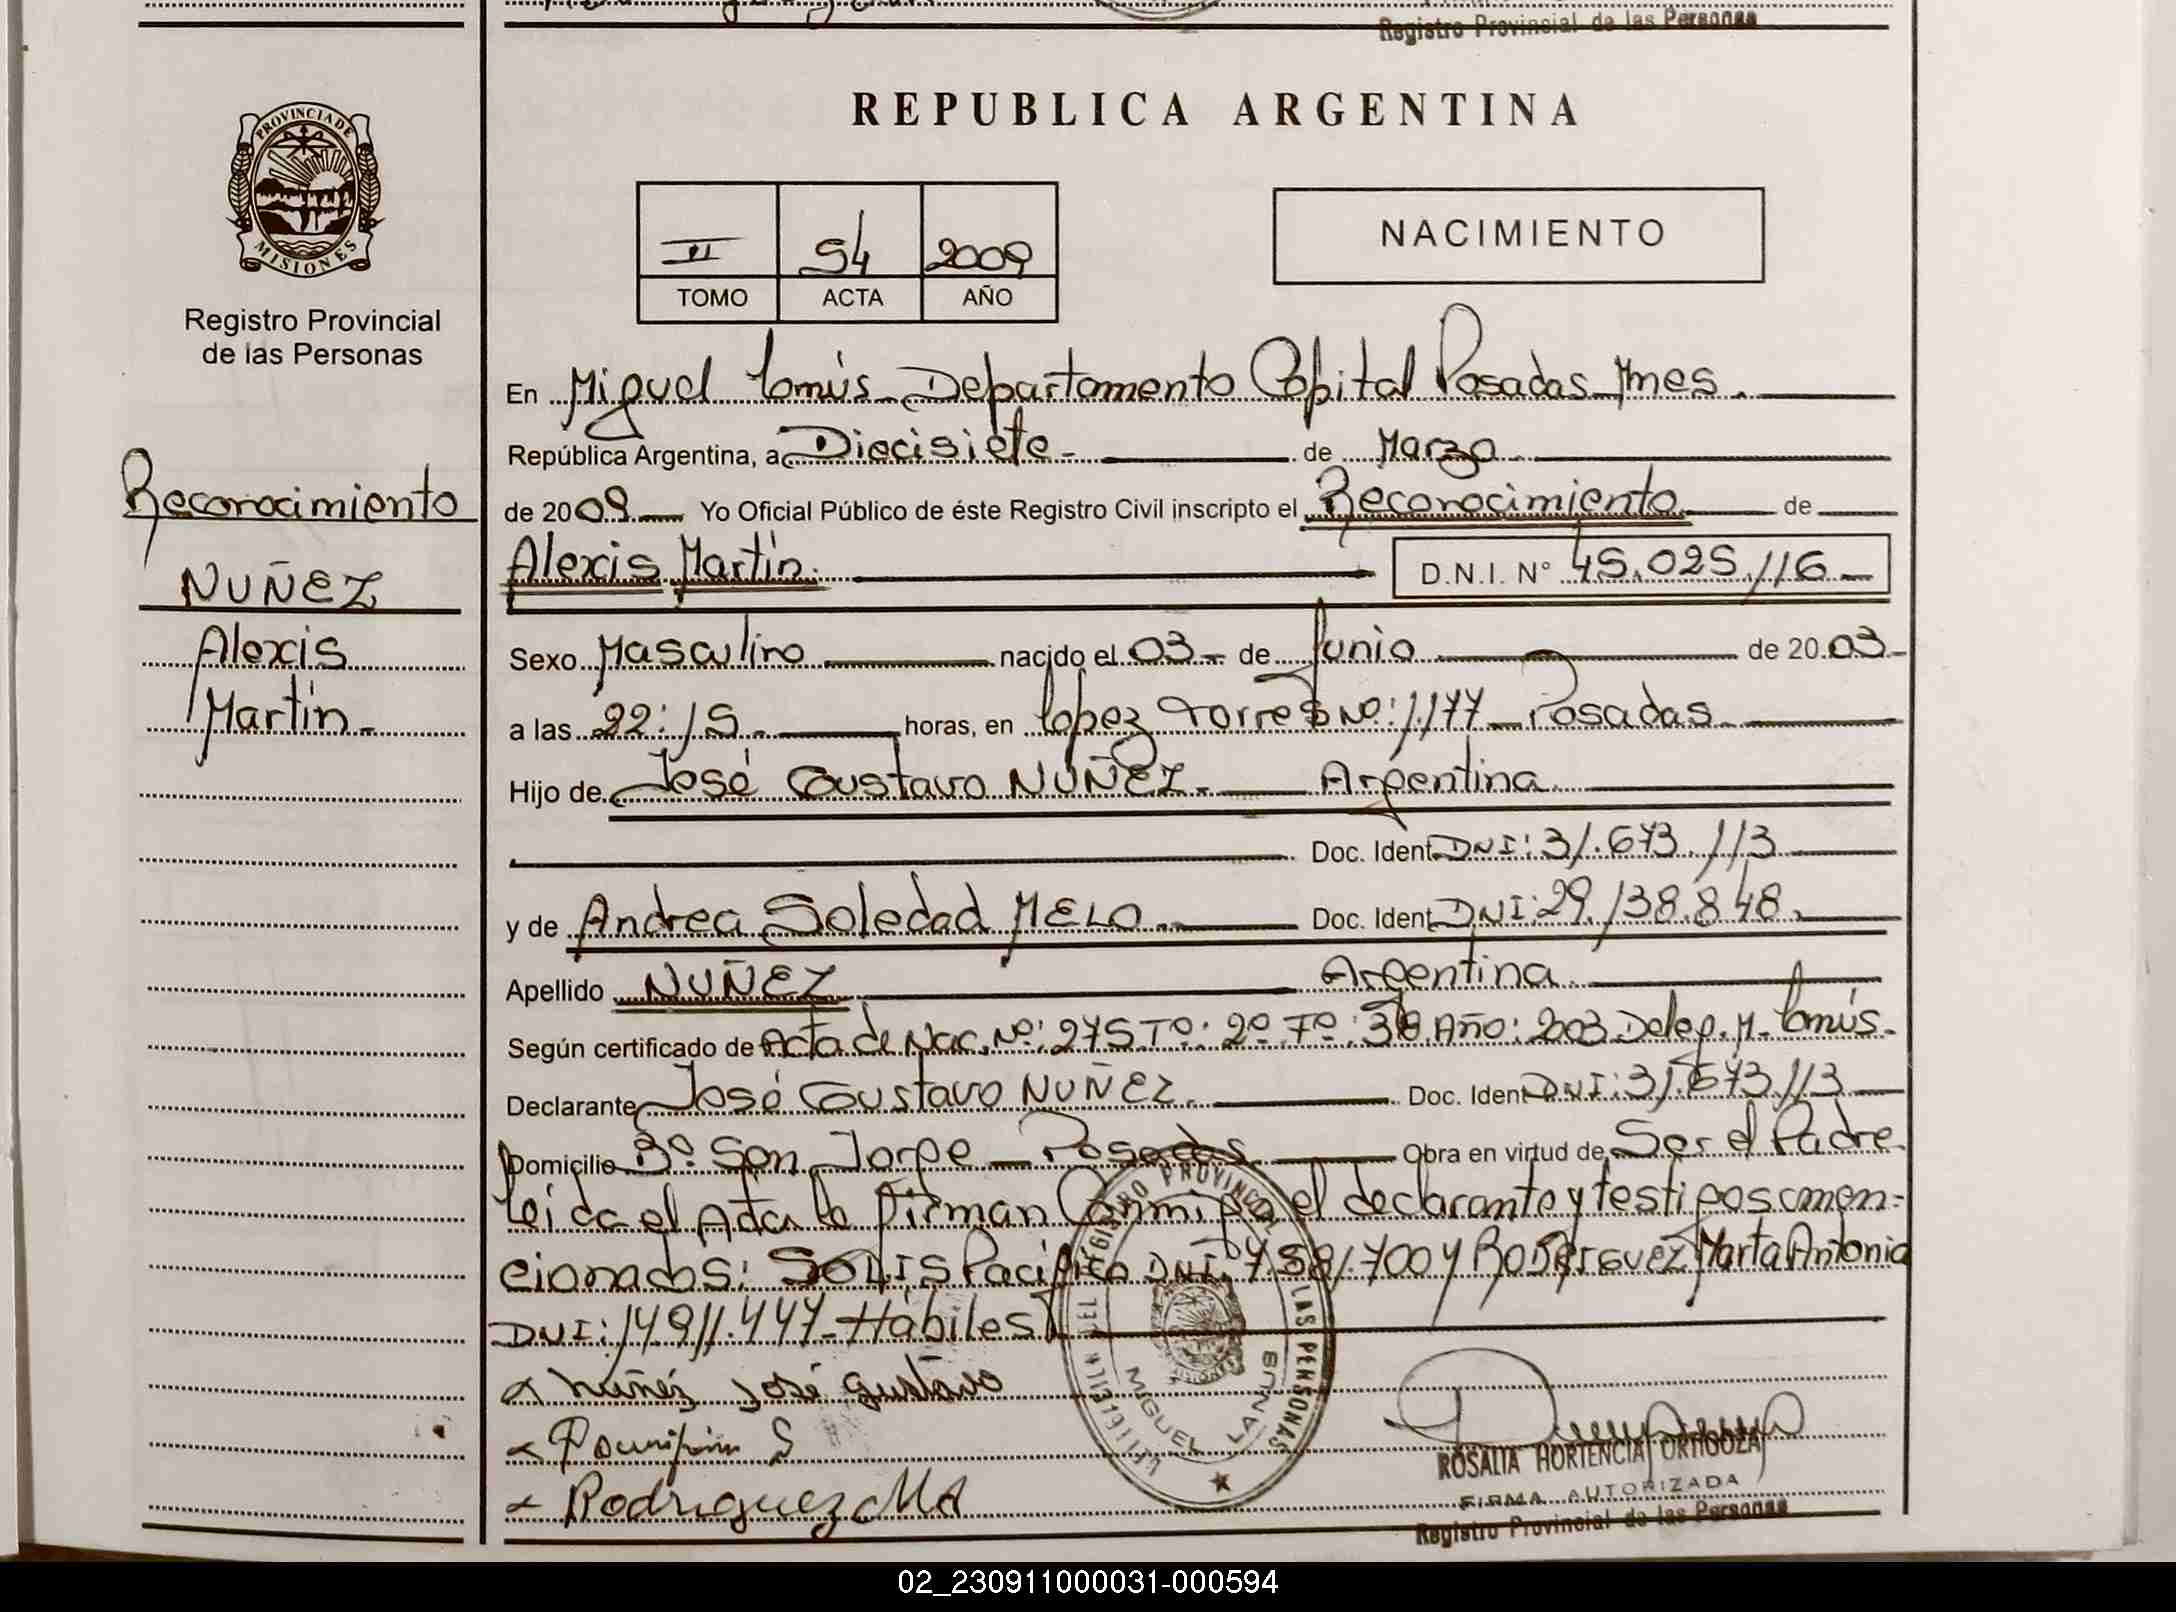 Registro Provincial de las Personas
REPUBLICA ARGENTINA
PROVINCIA DE
MISIONES
Registro Provincial
de las Personas
II 54 2009
TOMO ACTA AÑO
NACIMIENTO
Reconocimiento
NUÑEZ
Alexis
Martín.-
En Miguel Lanús. Departamento Capital Posadas Mnes.
República Argentina, a Diecisiete.- de Marzo
de 2009 Yo Oficial Público de éste Registro Civil inscripto el Reconocimiento de
Alexis Martín. D.N.I. N° 45.025.116-
Sexo Masculino nacido el 03- de Junio de 2003-
a las 22:15.- horas, en López Torres Nº: 1177 - Posadas
Hijo de José Gustavo NUÑEZ.- Argentina.
Doc. Ident DNI: 31.673.113
y de Andrea Soledad MELO.- Doc. Ident DNI: 29.138.848.
Apellido NUÑEZ Argentina.
Según certificado de Acta de Nac. Nº: 275 Tº: 2º Fº: 38 Año: 2003 Deleg. M. Lanús.-
Declarante José Gustavo NUÑEZ. Doc. Ident DNI: 31.673.113
Domicilio Bº San Jorge - Posadas Obra en virtud de Ser el Padre.
Leida el Acta la firman Conmigo el declarante y testigos comen=
cionados: SOLIS Pacífico DNI: 7.581.700 y RODRIGUEZ Marta Antonia
DNI: 14911.447- Hábiles
x Nuñéz José Gustavo
x S
x Rodriguez MA
REGISTRO PROVINCIAL LAS PERSONAS
MIGUEL LANUS
ROSALIA HORTENCIA ORTIGOZA
FIRMA AUTORIZADA
Registro Provincial de las Personas
02_230911000031-000594